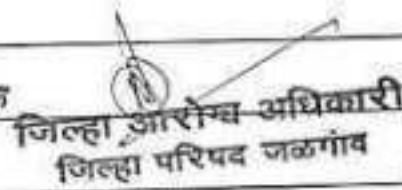 क
जिल्हा आरोग्य अधिकारी
जिल्हा परिषद जळगांव